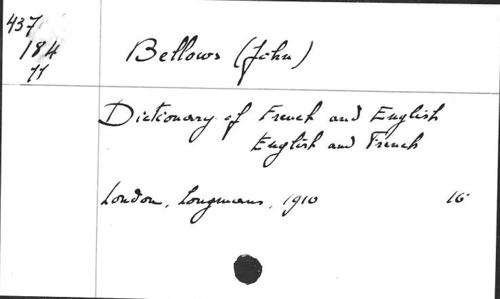 437
184
Bellows (John)
Dictionary of French and English
English and French
London, Longmans, 1910 16